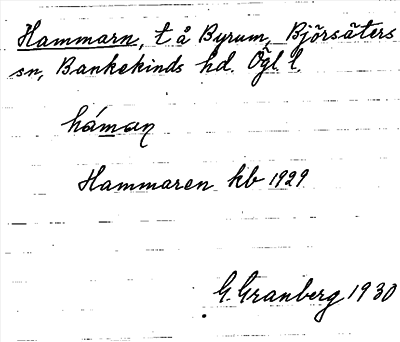 Hammarn, t å Byrum, Björsäters
sn, Bankekinds hd. Ögl l.
háman
Hammaren kb 1929
G. Granberg 1930